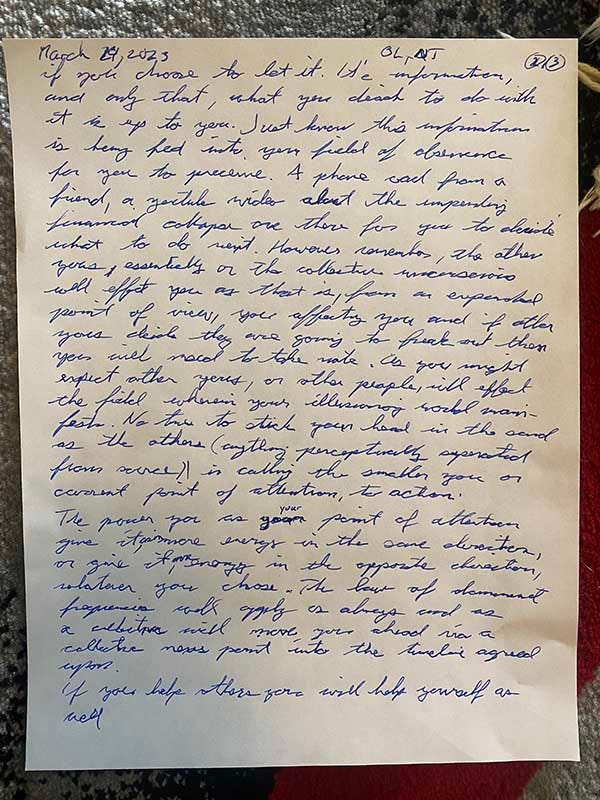 March 24, 2023 OL, NT 2/3
if you choose to let it. It's information,
and only that, what you decide to do with
it is up to you. Just know this information
is being fed into your field of observence
for you to perceive. A phone call from a
friend, a youtube video about the impending
financial collapse are there for you to decide
what to do next. However remember, the other
yous, essentially or the collective unconscious
will effect you as that is, from an expanded
point of view, you affecting you and if other
yous decide they are going to freak out then
you will need to take note. As you might
expect other yous, or other people, will effect
the field wherein your illusionary world mani-
fests. No time to stick your head in the sand
as the others (anything perceptually separated
from source) is calling the smaller you or
current point of attention, to action.
The power you as your point of attention
give it, is more energy in the same direction,
or give it energy in the opposite direction,
whatever you chose. The law of dominant
frequencies will apply as always and as
a collective will move you ahead via a
collective nexus point into the timeline agreed
upon.
If you help others you will help yourself as
well